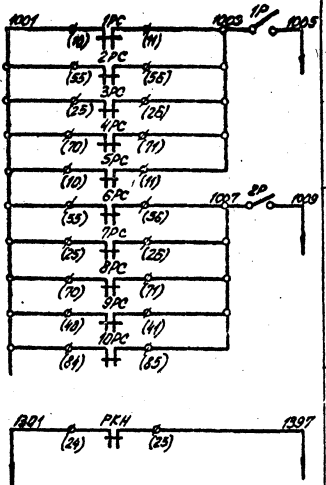 1001 1РС 1003 1Р 1005
(10) (11)
2РС
(55) (56)
3РС
(25) (26)
4РС
(70) (71)
5РС
(10) (11)
6РС 1007 2Р 1009
(55) (56)
7РС
(25) (26)
8РС
(70) (71)
9РС
(40) (41)
10РС
(84) (85)
1301 РКН 1397
(24) (25)